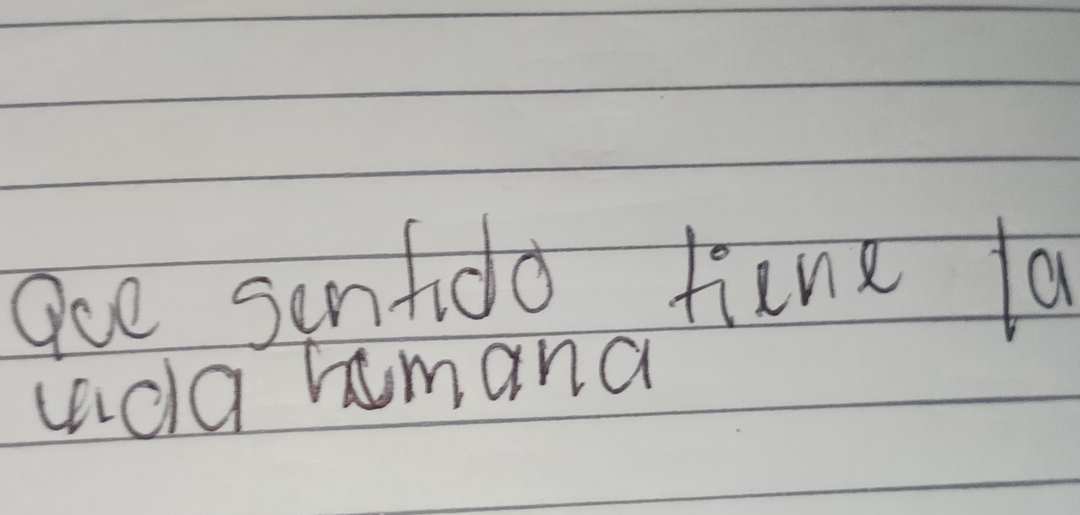 Que sentido tiene la
vida humana